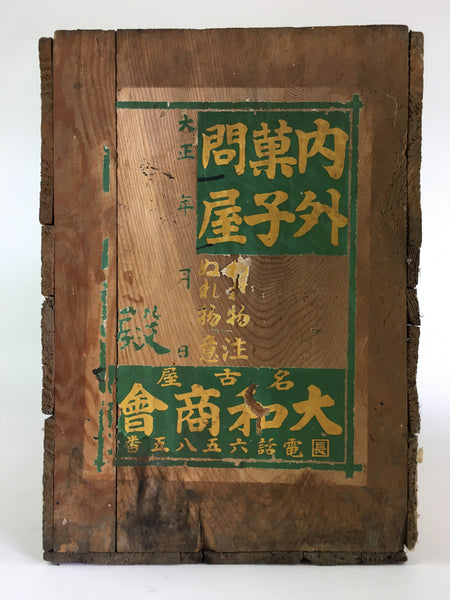 内外
菓子
問屋
物注
ぬれ物意
大正 年 月 日
名古屋
大和商會
長電話六五八五番